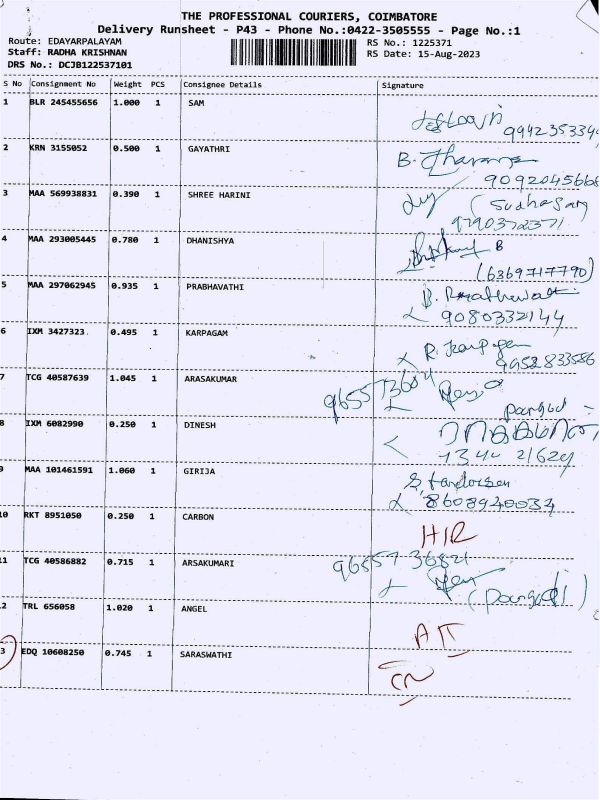 THE PROFESSIONAL COURIERS, COIMBATORE
Delivery Runsheet - P43 - Phone No.:0422-3505555 - Page No.:1
Route: EDAYARPALAYAM RS No.: 1225371
Staff: RADHA KRISHNAN RS Date: 15-Aug-2023
DRS No.: DCJB122537101
S No Consignment No Weight PCS Consignee Details Signature
1 BLR 245455656 1.000 1 SAM
2 KRN 3155052 0.500 1 GAYATHRI
3 MAA 569938831 0.390 1 SHREE HARINI
9790372371
4 MAA 293005445 0.780 1 DHANISHYA B
(6369717790)
5 MAA 297062945 0.935 1 PRABHAVATHI
9080332144
6 IXM 3427323 0.495 1 KARPAGAM
9952833586
7 TCG 40587639 1.045 1 ARASAKUMAR
8 IXM 6082990 0.250 1 DINESH
9 MAA 101461591 1.060 1 GIRIJA
8608940034
10 RKT 8951050 0.250 1 CARBON
11 TCG 40586882 0.715 1 ARSAKUMARI
9655736821
12 TRL 656058 1.020 1 ANGEL
3 EDQ 10608250 0.745 1 SARASWATHI